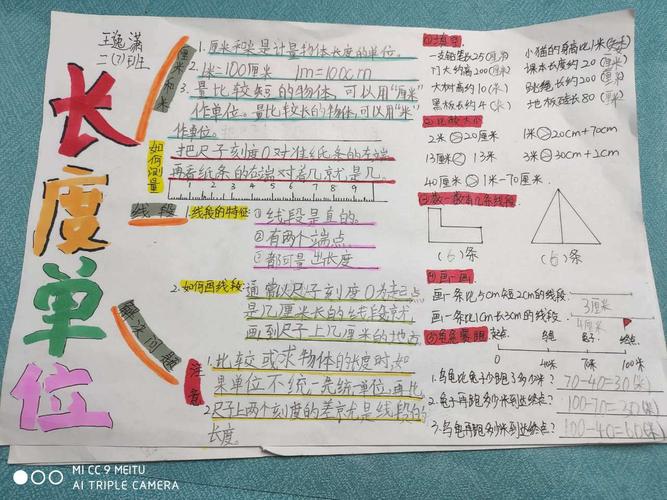 王逸潇
二(7)班
长度单位
厘米和米
1.厘米和米是计量物体长度的单位。
2.1米=100厘米 1m=100cm
3.量比较短的物体,可以用“厘米”
作单位。量比较长的物体,可以用“米”
作单位。
如何测量
把尺子刻度0对准纸条的左端
再看纸条的右端对着几就是几。
1 2 3 4 5 6 7 8 9
线段
1.线段的特征:
①线段是直的。
②有两个端点
③都可量出长度
2.如何画线段:
通常以尺子刻度0为起点
是几厘米长的线段就
画到尺子上几厘米的地方
解决问题
注意
1.比较或求物体的长度时,如
果单位不统一,先统一单位,再比
2.尺子上两个刻度的差就是线段的
长度。
一支铅笔长25(厘米) 小猫的身高比1米(矮)
门大约高200(厘米) 课本长度约20(厘米)
大树高约10(米) 跳绳长约200(厘米)
黑板长约4(米) 地板砖长80(厘米)
②比较大小
2米>20厘米 1米>20cm+70cm
13厘米<13米 3米>30cm+1cm
40厘米>1米-70厘米
③数一数有几条线段
(6)条 (6)条
④画一画
画一条比5cm短2cm的线段.
3厘米
画一条比1cm长3cm的线段.
4厘米
⑤龟兔赛跑
起点 乌龟 兔子 终点
0 40米 70米 100米
1.乌龟比兔子少跑了多少米? 70-40=30(米)
2.兔子再跑多少米到达终点? 100-70=30(米)
3.乌龟再跑多少米到达终点? 100-40=60(米)
MI CC 9 MEITU
AI TRIPLE CAMERA